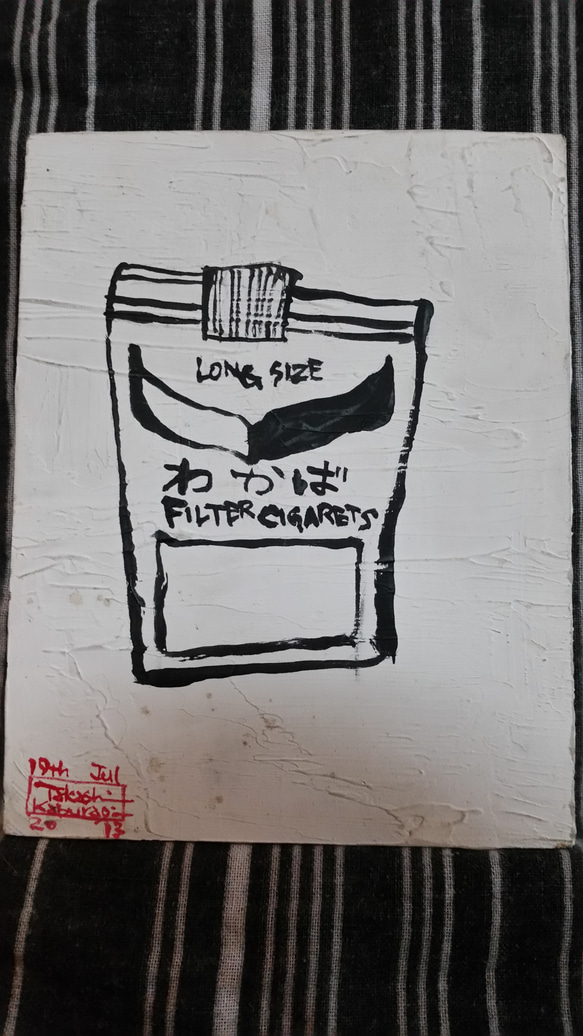 LONG SIZE
わかば
FILTER CIGARETS
19th Jul
Takashi
20 13